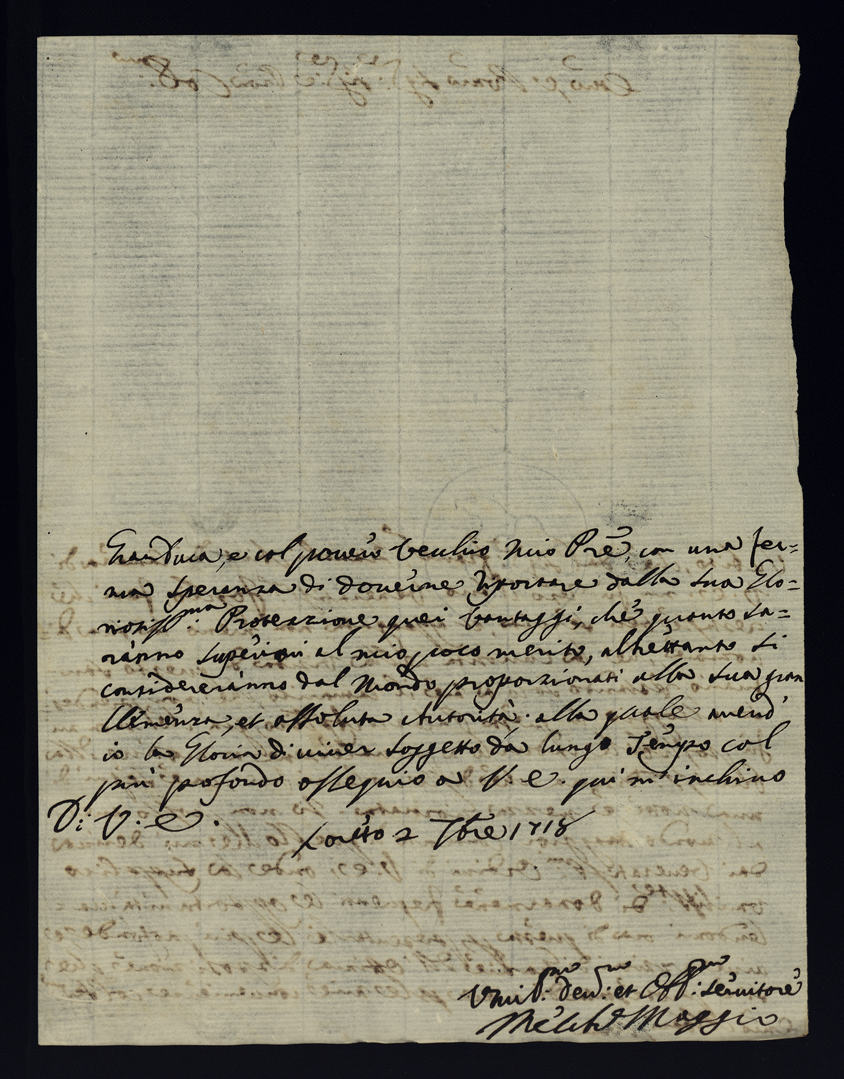 Granduca, e col povero Vecchio mio Prē, con una fer=
ma speranza di doverne riportare dalla sua Glo=
riosiss.ma Protezzione quei vantaggi, che quanto sa=
ranno superiori al mio poco merito, altrettanto si
considereranno dal Mondo proporzionati alla sua gran
Clemenza, et assoluta Autorità. alla quale avend'
io la Gloria di viver soggetto da lungo Tempo col
più profondo ossequio a V. e. qui m'inchino
Di V. e.
Loreto 2 7bre 1718
Umil.mo dev.mo et Obb.mo servitore
Melch.r Maggio